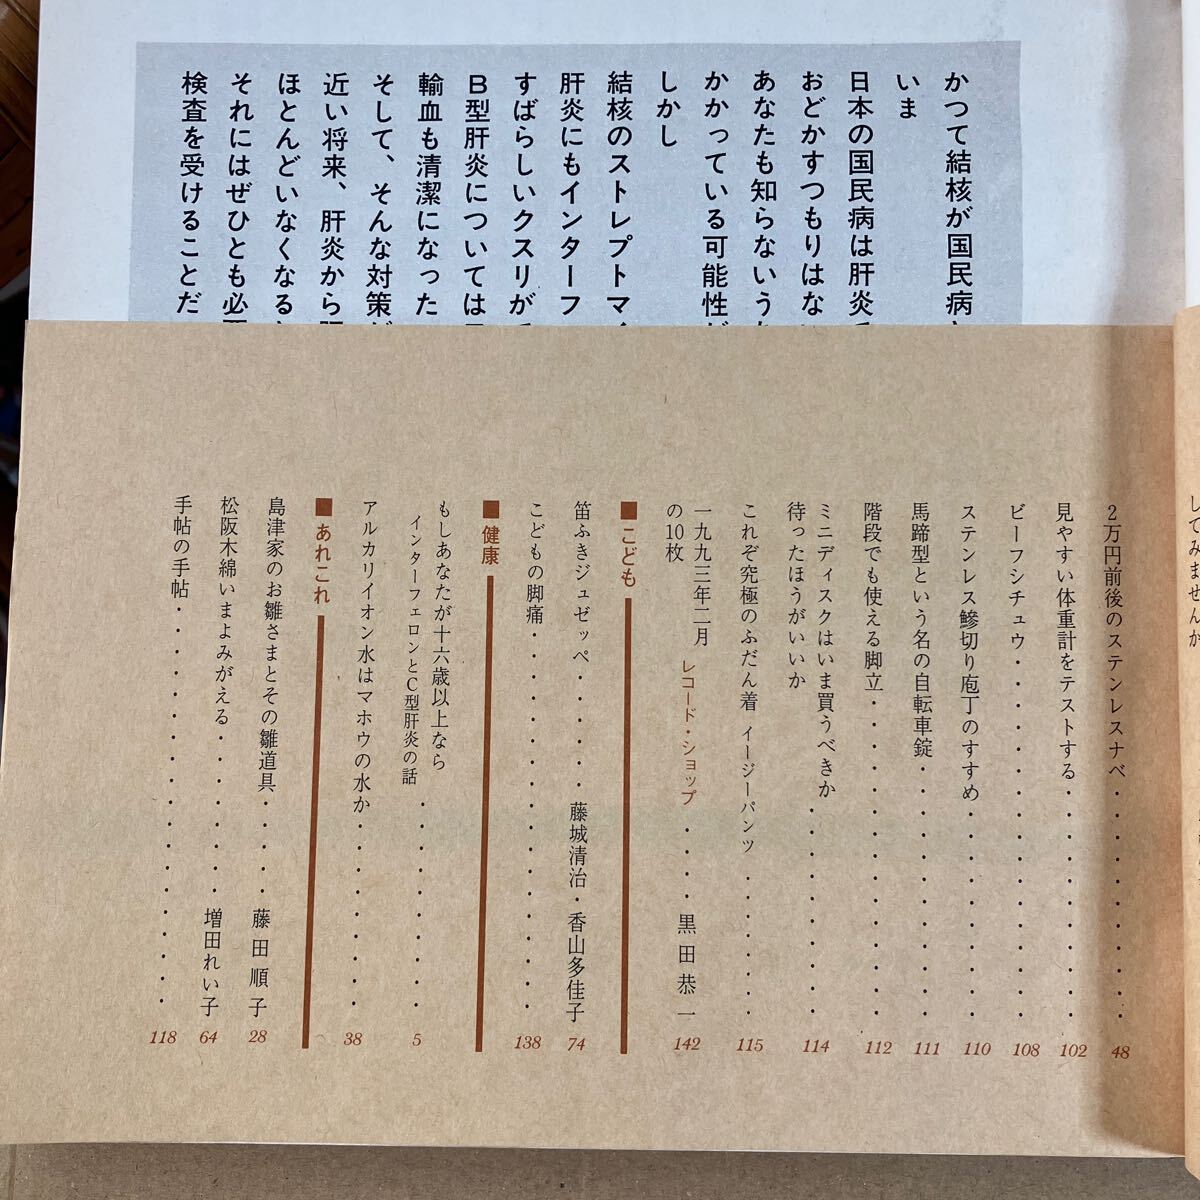 かつて結核が国民病
いま
日本の国民病は肝炎
おどかすつもりはな
あなたも知らないう
かかっている可能性が
しかし
結核のストレプトマイ
肝炎にもインターフ
すばらしいクスリが
B型肝炎については
輸血も清潔になった
そして、そんな対策が
近い将来、肝炎から
ほとんどいなくなる
それにはぜひとも必要
検査を受けることだ
してみませんか
2万円前後のステンレスナベ・・・・・・・・・・48
見やすい体重計をテストする・・・・・・・・・・102
ビーフシチュウ・・・・・・・・・・・・・108
ステンレス鰺切り庖丁のすすめ・・・・・・・・・110
馬蹄型という名の自転車錠・・・・・・・・・・・111
階段でも使える脚立・・・・・・・・・・・・112
ミニディスクはいま買うべきか
待ったほうがいいか・・・・・・・・・・114
これぞ究極のふだん着 イージーパンツ・・・・・・・115
一九九三年二月 レコード・ショップ・・・・黒田恭一 142
の10枚
■こども
笛ふきジュゼッペ・・・・・・藤城清治・香山多佳子 74
こどもの脚痛・・・・・・・・・・・・・・138
■健康
もしあなたが十六歳以上なら
インターフェロンとC型肝炎の話・・・・・・・・・5
アルカリイオン水はマホウの水か・・・・・・・・・38
■あれこれ
島津家のお雛さまとその雛道具・・・・・藤田順子 28
松阪木綿いまよみがえる・・・・・・・増田れい子 64
手帖の手帖・・・・・・・・・・・・・・・118